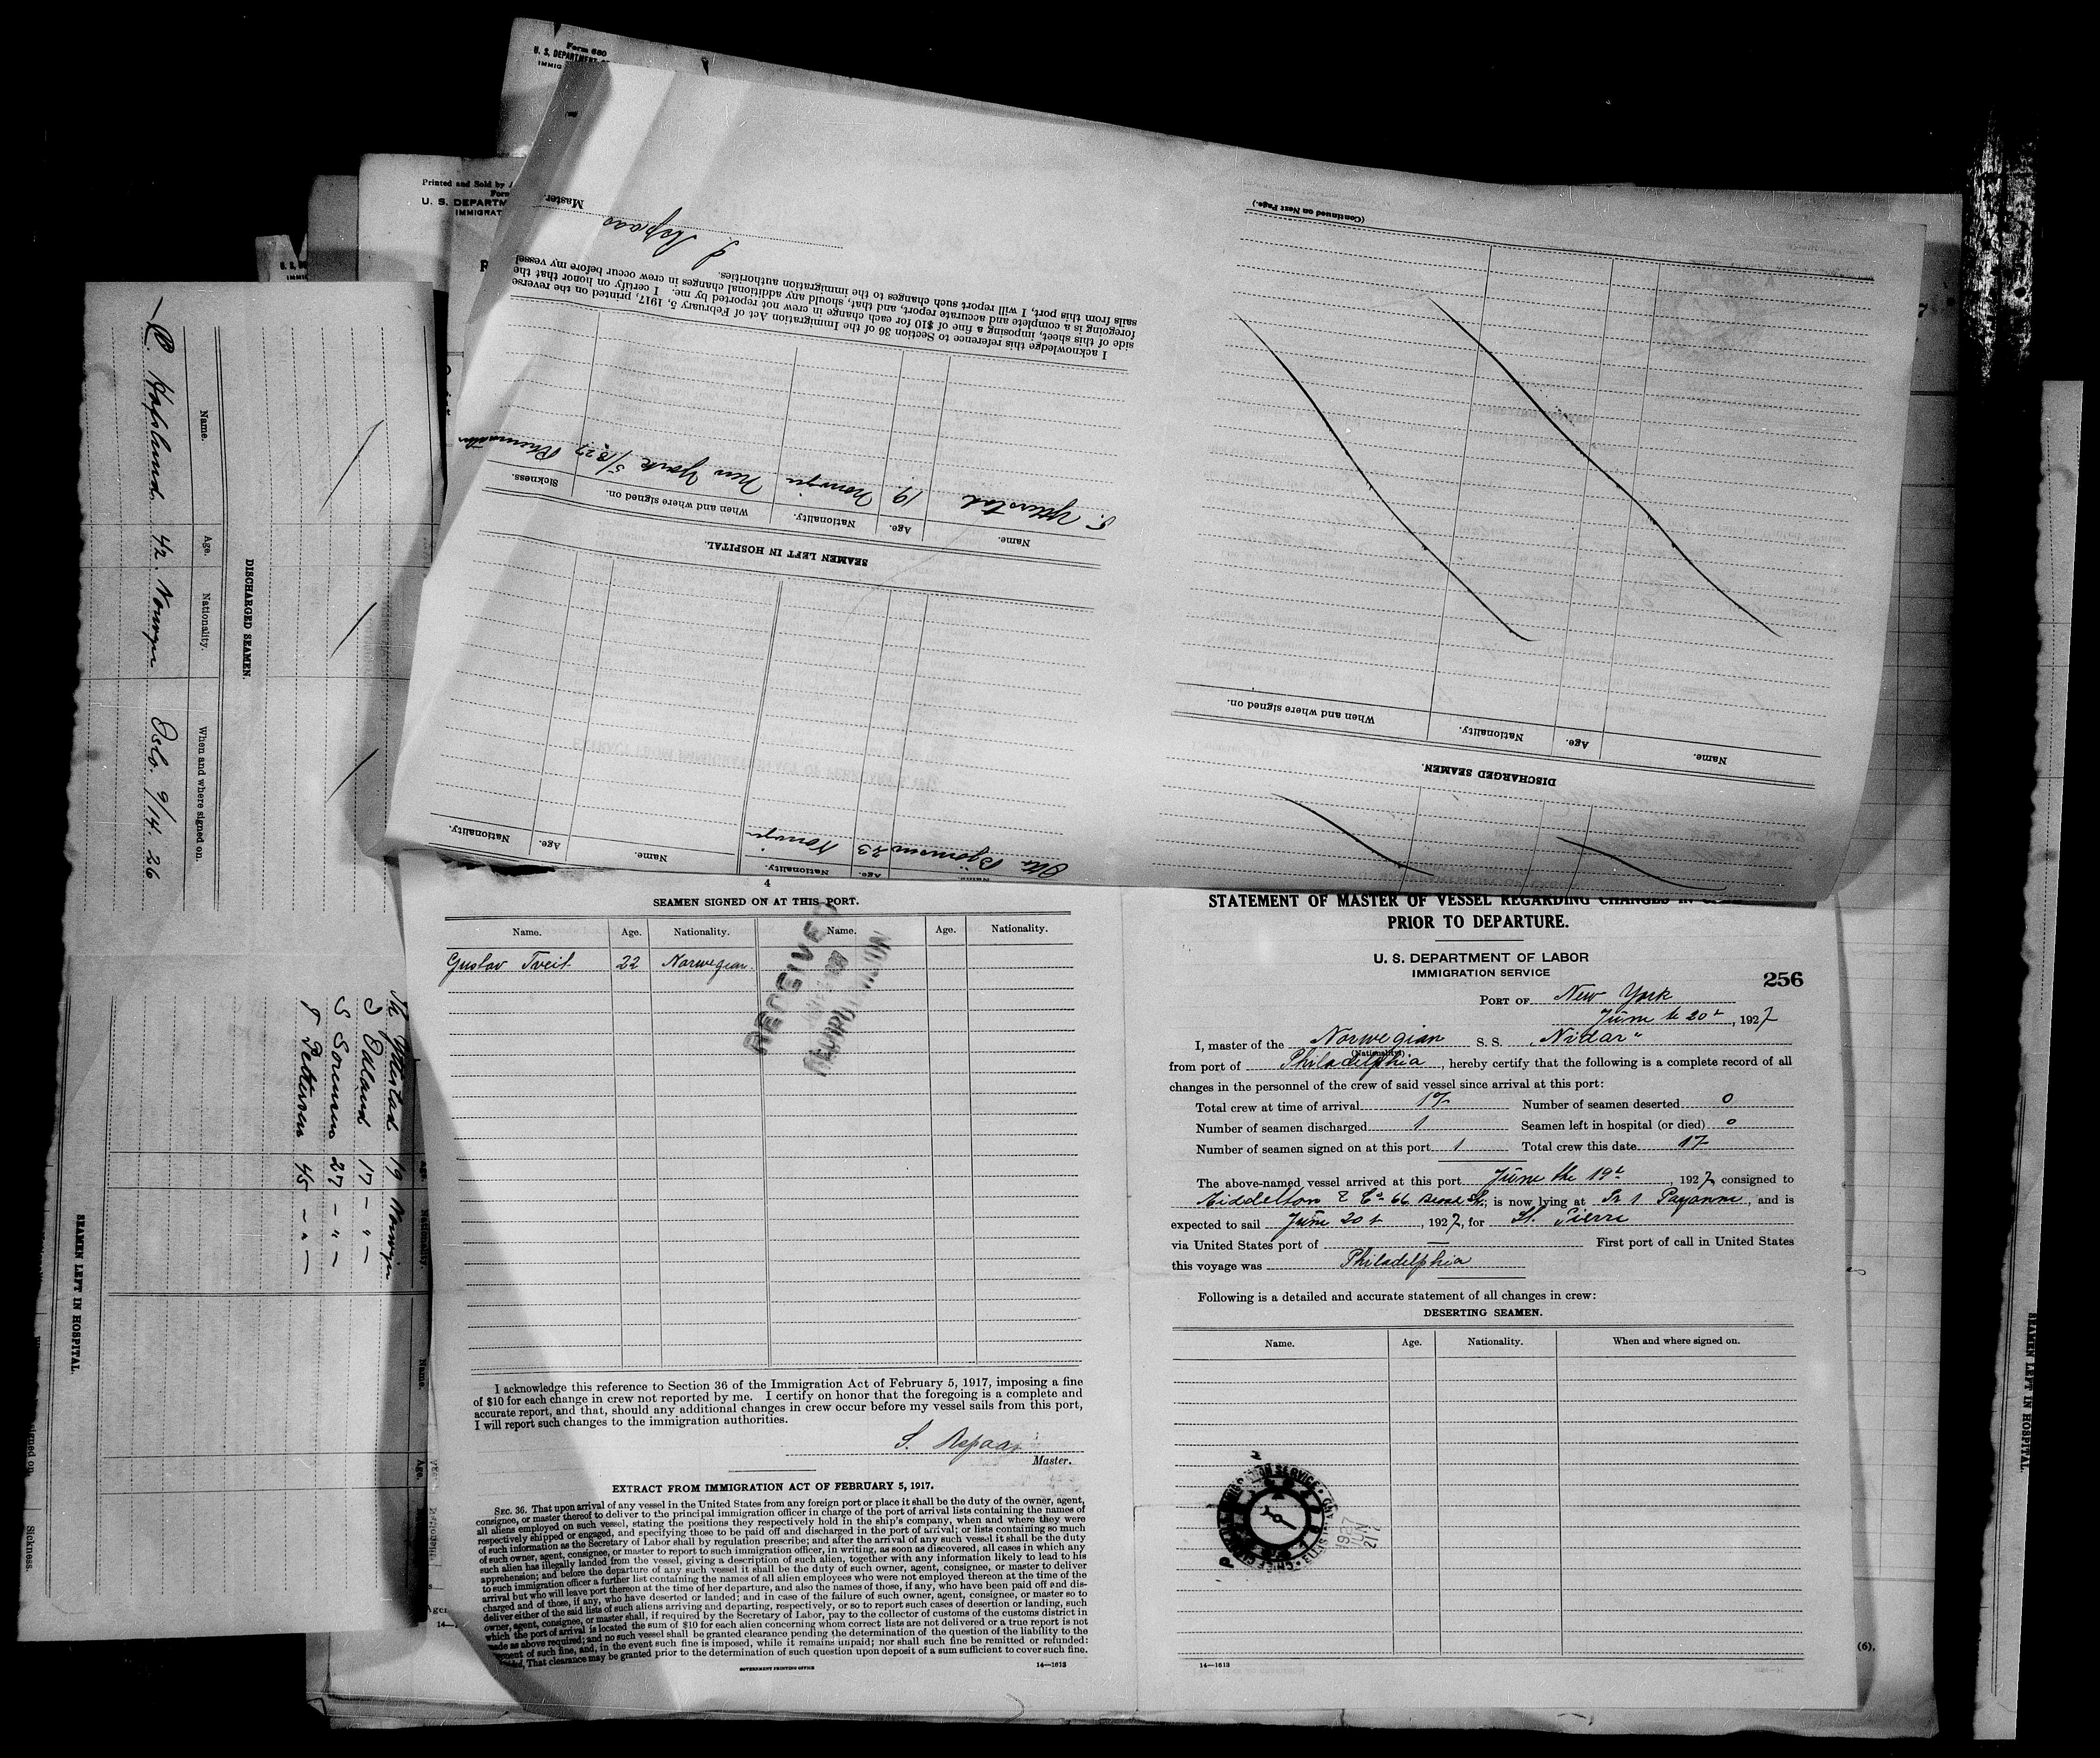 Form 680
U. S. DEPARTMENT
IMMIG
Printed and Sold by
Form
U. S. DEPARTM
IMMIGRAT
DISCHARGED SEAMEN.
Name. Age. Nationality. When and where signed on.
Hafslund 42 Norwegn Oslo. 9/14. 26
SEAMEN LEFT IN HOSPITAL.
Yttestad 19 Norwegn
Edland 17 — " —
S Sorensen 27 — " —
Pettersen 45 — " —
(Continued on Next Page.)
DISCHARGED SEAMEN.
Name. Age. Nationality. When and where signed on.
Otto Bjornsen 23 Norwegn
Name. Age. Nationality.
SEAMEN LEFT IN HOSPITAL.
Name. Age. Nationality. When and where signed on. Sickness.
Ytterstad 19 Norwegn New York
I acknowledge this reference to Section 36 of the Immigration Act of February 5, 1917, printed on the reverse
side of this sheet, imposing a fine of $10 for each change in crew not reported by me. I certify on honor that the
foregoing is a complete and accurate report, and that, should any additional changes in crew occur before my vessel
sails from this port, I will report such changes to the immigration authorities.
Master.
4
SEAMEN SIGNED ON AT THIS PORT.
Name. Age. Nationality. Name. Age. Nationality.
Gustav Tveit 22 Norwegian.
RECEIVED
I acknowledge this reference to Section 36 of the Immigration Act of February 5, 1917, imposing a fine
of $10 for each change in crew not reported by me. I certify on honor that the foregoing is a complete and
accurate report, and that, should any additional changes in crew occur before my vessel sails from this port,
I will report such changes to the immigration authorities.
Master.
EXTRACT FROM IMMIGRATION ACT OF FEBRUARY 5, 1917.
SEC. 36. That upon arrival of any vessel in the United States from any foreign port or place it shall be the duty of the owner, agent,
consignee, or master thereof to deliver to the principal immigration officer in charge of the port of arrival lists containing the names of
all aliens employed on such vessel, stating the positions they respectively hold in the ship's company, when and where they were
respectively shipped or engaged, and specifying those to be paid off and discharged in the port of arrival; or lists containing so much
of such information as the Secretary of Labor shall by regulation prescribe; and after the arrival of any such vessel it shall be the duty
of such owner, agent, consignee, or master to report to such immigration officer, in writing, as soon as discovered, all cases in which any
such alien has illegally landed from the vessel, giving a description of such alien, together with any information likely to lead to his
apprehension; and before the departure of any such vessel it shall be the duty of such owner, agent, consignee, or master to deliver
to such immigration officer a further list containing the names of all alien employees who were not employed thereon at the time of the
arrival but who will leave port thereon at the time of her departure, and also the names of those, if any, who have been paid off and dis-
charged and of those, if any, who have deserted or landed; and in case of the failure of such owner, agent, consignee, or master so to
deliver either of the said lists of such aliens arriving and departing, respectively, or so to report such cases of desertion or landing, such
owner, agent, consignee, or master shall, if required by the Secretary of Labor, pay to the collector of customs of the customs district in
which the port of arrival is located the sum of $10 for each alien concerning whom correct lists are not delivered or a true report is not
made as above required; and no such vessel shall be granted clearance pending the determination of the question of the liability to the
payment of such fine, and, in the event such fine is imposed, while it remains unpaid; nor shall such fine be remitted or refunded:
That clearance may be granted prior to the determination of such question upon deposit of a sum sufficient to cover such fine.
GOVERNMENT PRINTING OFFICE 14—1613
STATEMENT OF MASTER OF VESSEL REGARDING CHANGES IN
PRIOR TO DEPARTURE.
U. S. DEPARTMENT OF LABOR
IMMIGRATION SERVICE
256
PORT OF New York
June 20, 1927
I, master of the Norwegian S. S. "Nidar"
(Nationality)
from port of Philadelphia, hereby certify that the following is a complete record of all
changes in the personnel of the crew of said vessel since arrival at this port:
Total crew at time of arrival 17 Number of seamen deserted 0
Number of seamen discharged 1 Seamen left in hospital (or died) 0
Number of seamen signed on at this port 1 Total crew this date 17
The above-named vessel arrived at this port June the 19, 1927, consigned to
Middelton & Co 66 St; is now lying at Pr 1, and is
expected to sail June 20, 1927, for St. Pierre
via United States port of — First port of call in United States
this voyage was Philadelphia
Following is a detailed and accurate statement of all changes in crew:
DESERTING SEAMEN.
Name. Age. Nationality. When and where signed on.
1927 JUN 21
14—1613
(6).
SEAMEN LEFT IN HOSPITAL.
Sickness.